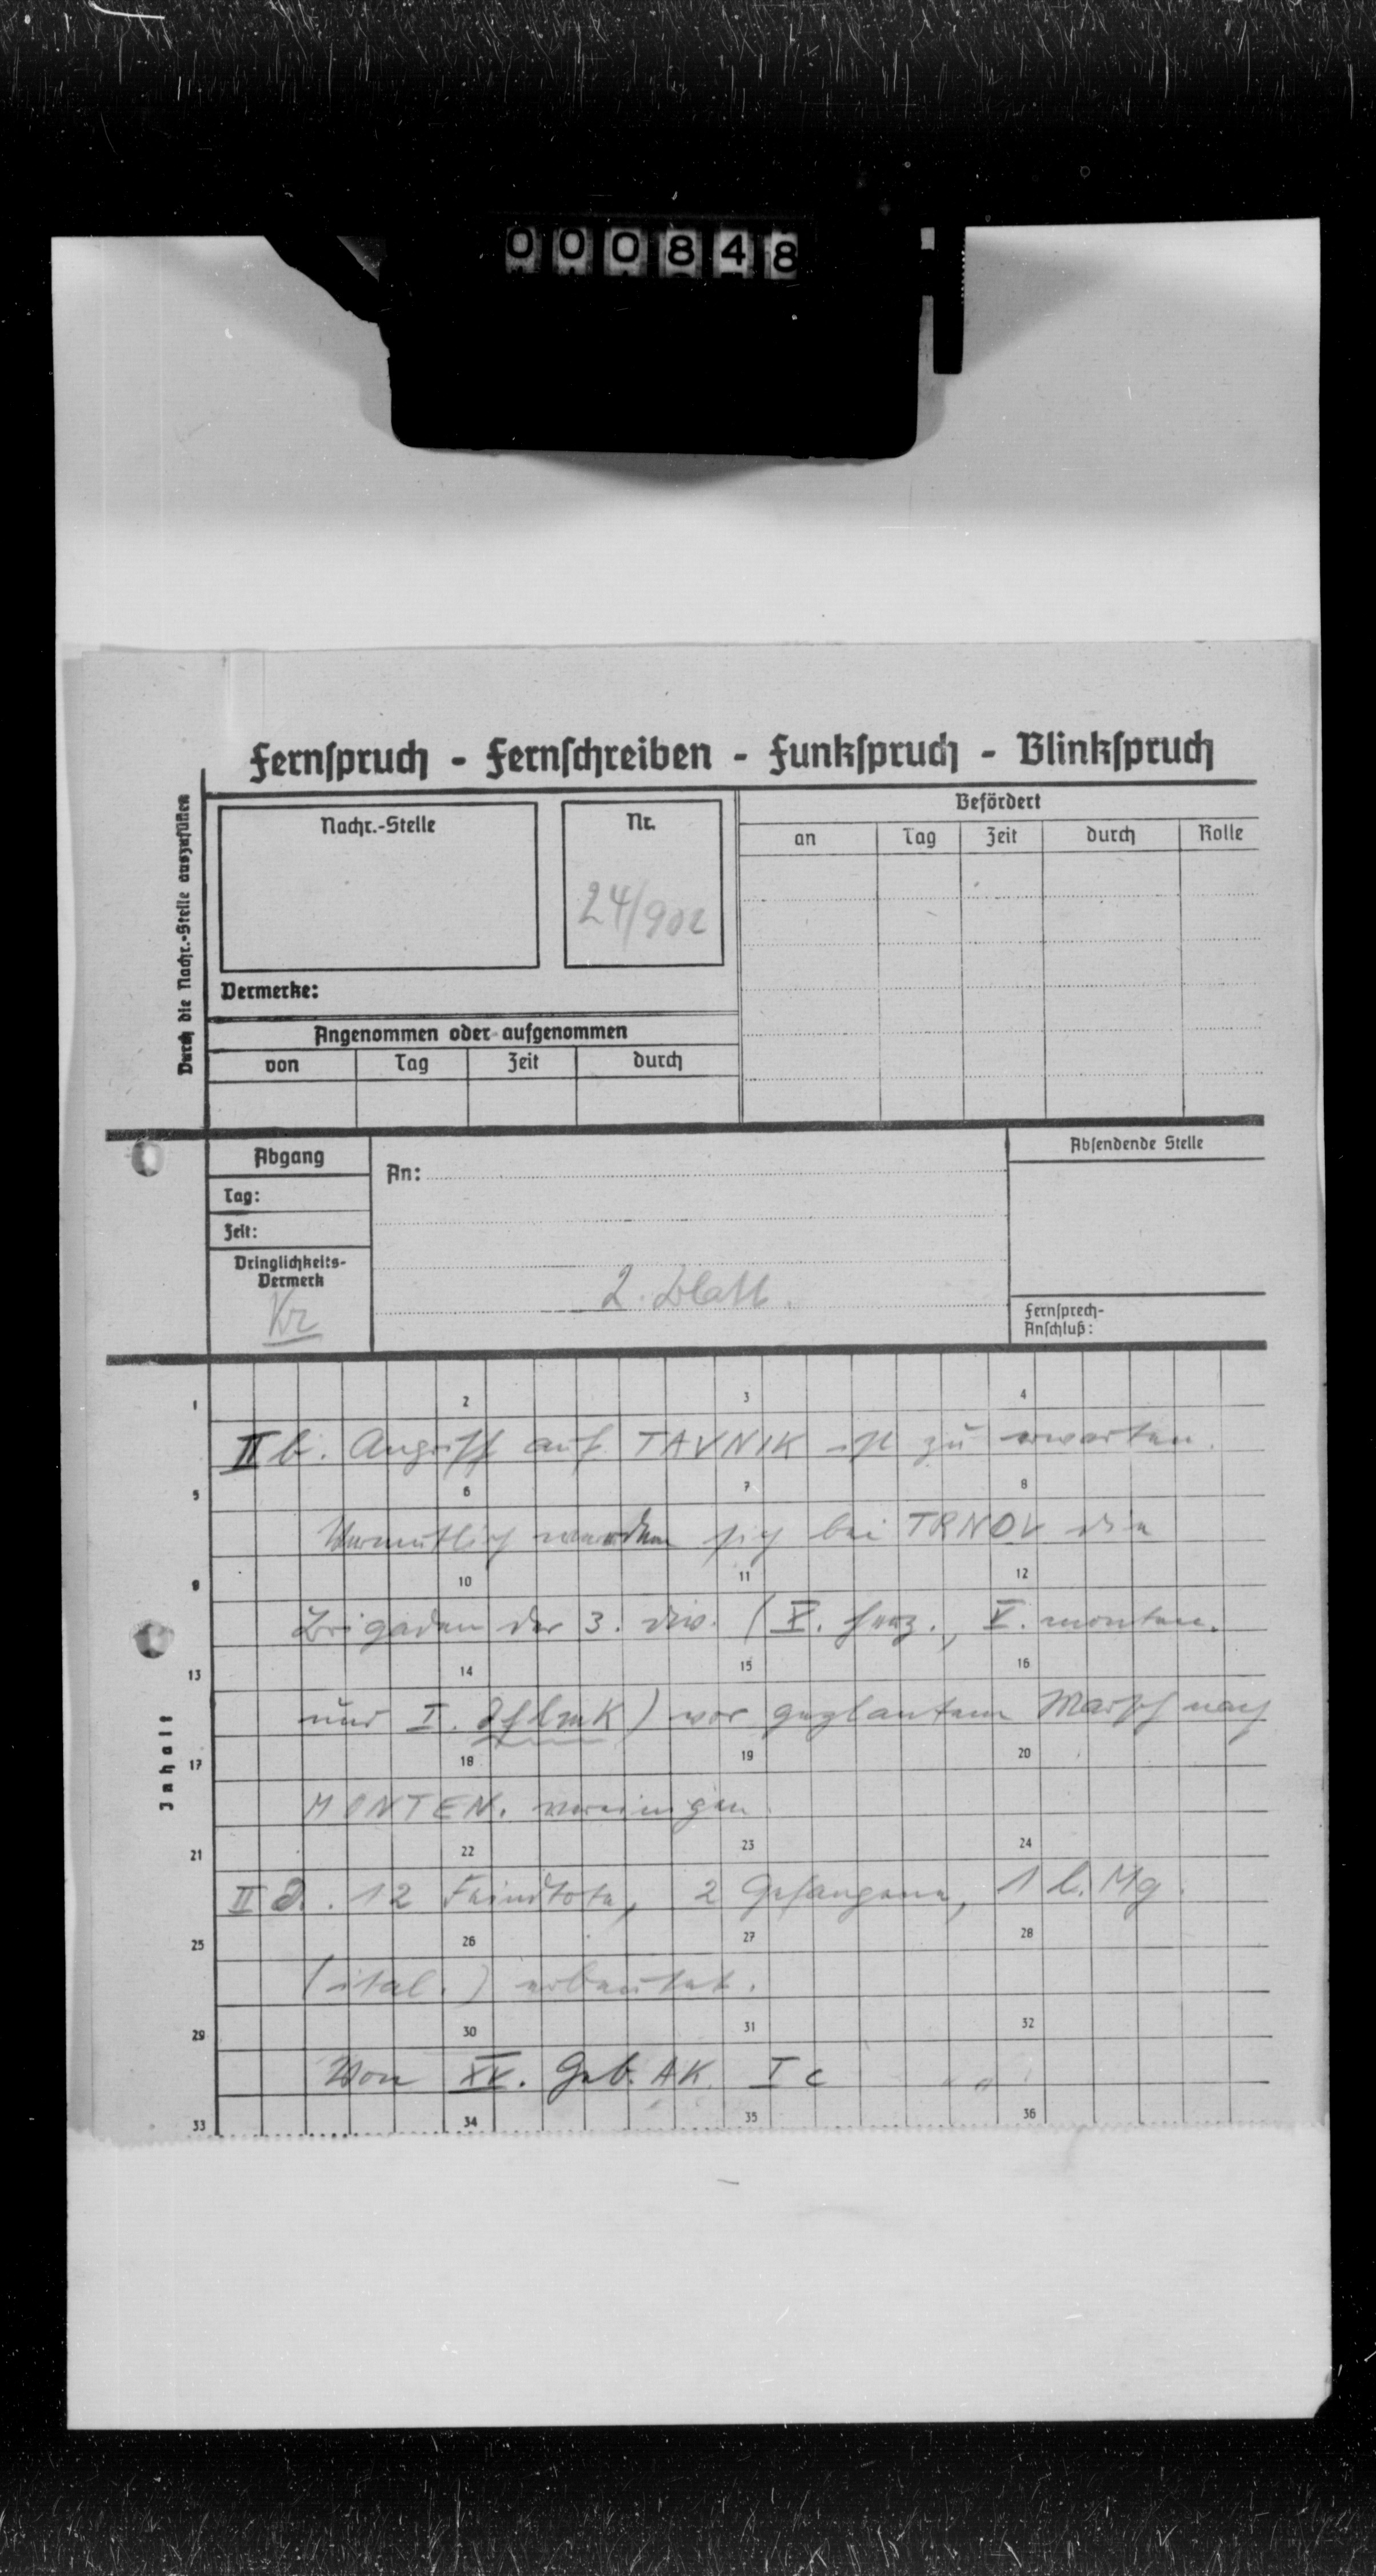 000848
Fernspruch - Fernschreiben - Funkspruch - Blinkspruch
Durch die Nachr.-Stelle auszufüllen
Nachr.-Stelle
Nr.
24/902
Befördert
an Tag Zeit durch Rolle
Vermerke:
Angenommen oder aufgenommen
von Tag Zeit durch
Abgang
Tag:
Zeit:
Dringlichkeits-
Vermerk
Kr
An:
2. Blatt.
Absendende Stelle
Fernsprech-
Anschluß:
Inhalt
1 2 3 4
II b. Angriff auf TAVNIK ist zu erwarten.
5 6 7 8
Vermutlich werden sich bei TRNOV die
9 10 11 12
Brigaden der 3. Div. (X. herz., V. monten.
13 14 15 16
und I.) vor geplantem Marsch nach
17 18 19 20
MONTEN. vereinigen.
21 22 23 24
II d. 12 Feindtote, 2 Gefangene, 1 l. Mg.
25 26 27 28
(ital.) erbeutet.
29 30 31 32
Von XV. Geb. AK. Ic
33 34 35 36